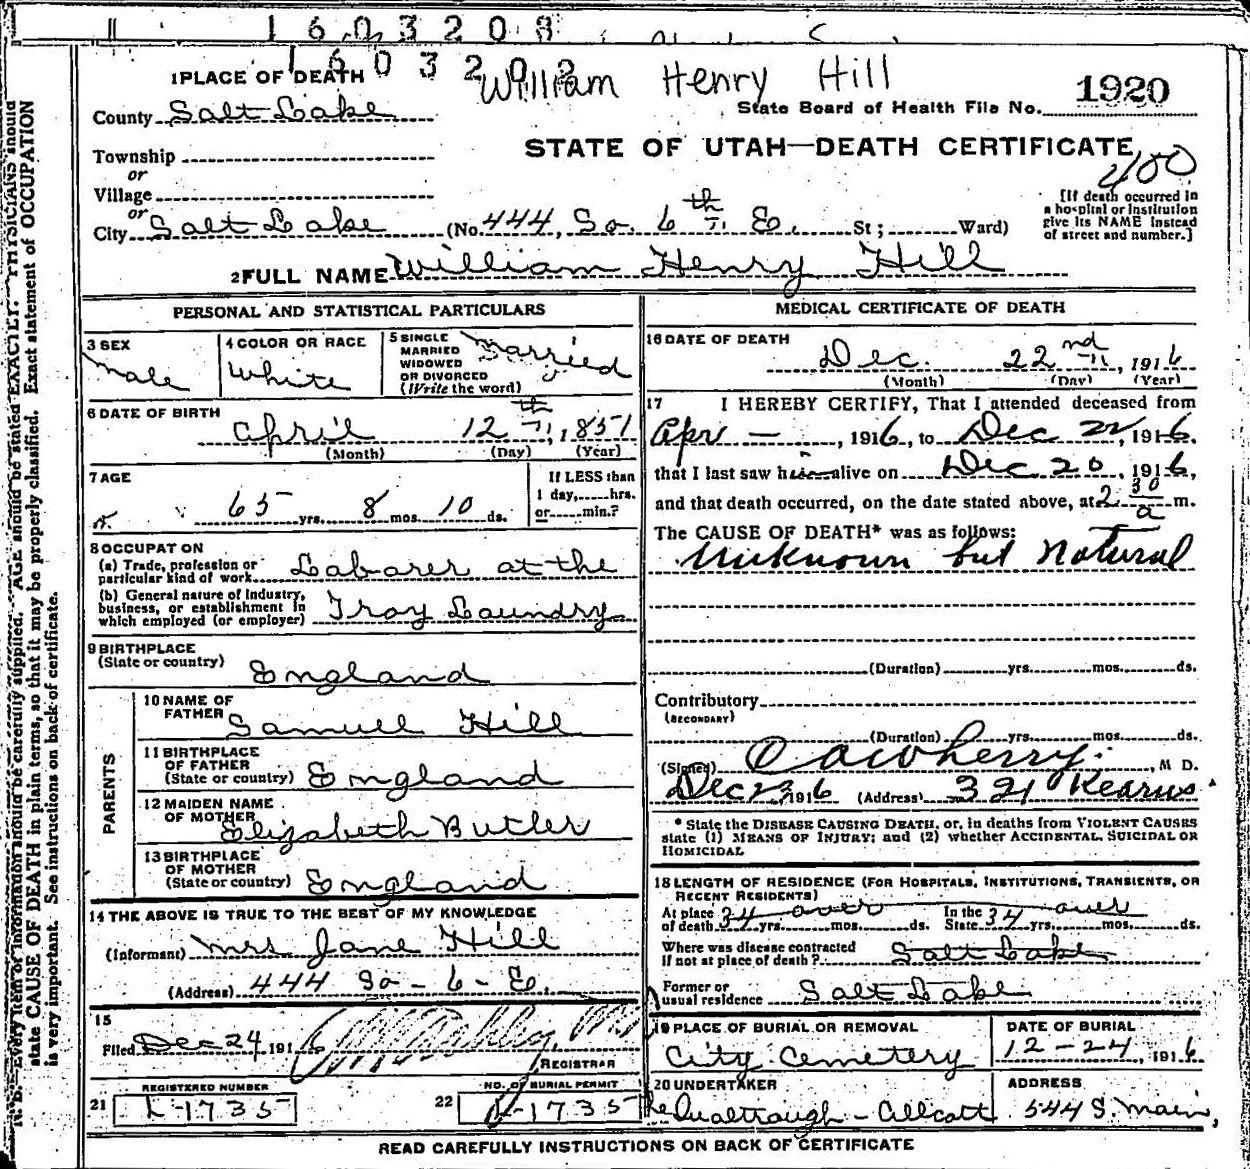 1603208
1603202
William Henry Hill
1 PLACE OF DEATH
1920
State Board of Health File No.
County Salt Lake
STATE OF UTAH—DEATH CERTIFICATE
Township
or
Village
or
City Salt Lake (No. 444, So. 6th E. St; Ward)
[If death occurred in
a hospital or institution
give its NAME instead
of street and number.]
2 FULL NAME William Henry Hill
PERSONAL AND STATISTICAL PARTICULARS
3 SEX
male
4 COLOR OR RACE
White
5 SINGLE
MARRIED
WIDOWED
OR DIVORCED
(Write the word)
Married
6 DATE OF BIRTH
April 12th, 1851
(Month) (Day) (Year)
7 AGE
65 yrs. 8 mos. 10 ds.
If LESS than
1 day, hrs.
or min.?
8 OCCUPATON
(a) Trade, profession or
particular kind of work Laborer at the
(b) General nature of industry,
business, or establishment in
which employed (or employer) Troy Laundry
9 BIRTHPLACE
(State or country) England
PARENTS
10 NAME OF
FATHER Samuel Hill
11 BIRTHPLACE
OF FATHER
(State or country) England
12 MAIDEN NAME
OF MOTHER Elizabeth Butler
13 BIRTHPLACE
OF MOTHER
(State or country) England
14 THE ABOVE IS TRUE TO THE BEST OF MY KNOWLEDGE
(Informant) Mrs Jane Hill
(Address) 444 So - 6 - E.
15
Filed Dec 24 1916
REGISTRAR
REGISTERED NUMBER
21 L-1735
NO. OF BURIAL PERMIT
22 L-1735
MEDICAL CERTIFICATE OF DEATH
16 DATE OF DEATH
Dec. 22nd, 1916
(Month) (Day) (Year)
17 I HEREBY CERTIFY, That I attended deceased from
Apr —, 1916, to Dec 22, 1916,
that I last saw him alive on Dec 20, 1916,
and that death occurred, on the date stated above, at 2 30 a m.
The CAUSE OF DEATH* was as follows:
Unknown but Natural
(Duration) yrs. mos. ds.
Contributory
(SECONDARY)
(Duration) yrs. mos. ds.
(Signed) , M D.
Dec 23 1916 (Address) 321 Kearns
* State the DISEASE CAUSING DEATH, or, in deaths from VIOLENT CAUSES
state (1) MEANS OF INJURY; and (2) whether ACCIDENTAL, SUICIDAL OR
HOMICIDAL
18 LENGTH OF RESIDENCE (FOR HOSPITALS, INSTITUTIONS, TRANSIENTS, OR
RECENT RESIDENTS)
At place
of death 34 over yrs. mos. ds. In the
State 34 over yrs. mos. ds.
Where was disease contracted
if not at place of death? Salt Lake
Former or
usual residence Salt Lake
19 PLACE OF BURIAL OR REMOVAL
City Cemetery
DATE OF BURIAL
12-24, 1916
20 UNDERTAKER
ADDRESS
544 S. Main,
READ CAREFULLY INSTRUCTIONS ON BACK OF CERTIFICATE
N. B. Every item of information should be carefully supplied. AGE should be stated EXACTLY. PHYSICIANS should
state CAUSE OF DEATH in plain terms, so that it may be properly classified. Exact statement of OCCUPATION
is very important. See instructions on back of certificate.